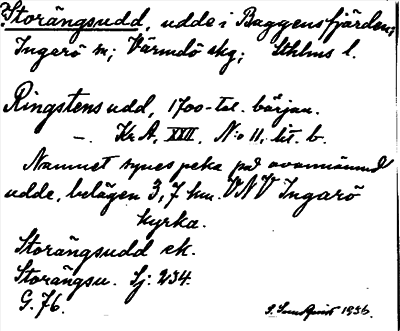 ?Storängsudd, udde i Baggensfjärden,
Ingarö sn; Värmdö skg; Sthlms l.
Ringstensudd, 1700-tal. början.
—. Kr A, XXII, N:o 11, lit. b.
Namnet synes peka på ovannämnd
udde, belägen 3,7 km. VNV Ingarö
kyrka.
Storängsudd ek.
Storängsu. Sj: 234.
G. 76.
S. Sundquist 1936.